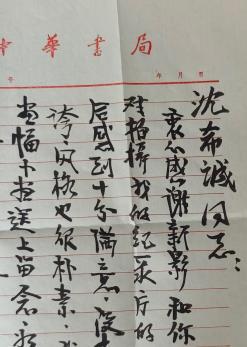 中華書局
年 月 日
沈希诚同志：
衷心感谢新影和你
对拍摄我的纪录片的
后感到十分满意，没有
夸，风格也很朴素，
出幅小书送上留念，